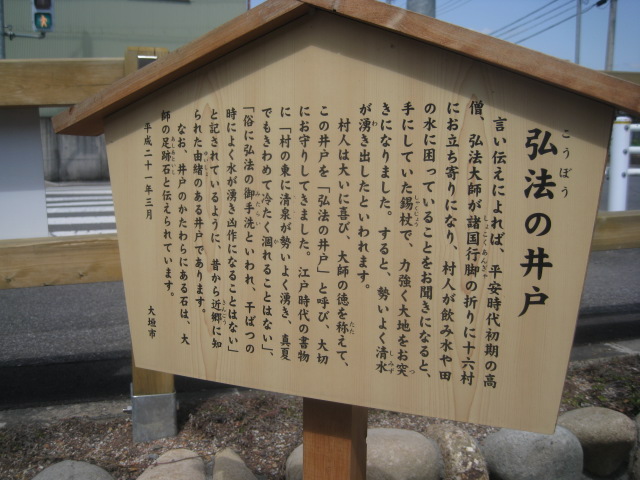 こうぼう
弘法の井戸
言い伝えによれば、平安時代初期の高
僧、弘法大師が諸国行脚の折りに十六村
にお立ち寄りになり、村人が飲み水や田
の水に困っていることをお聞きになると、
手にしていた錫杖で、力強く大地をお突
きになりました。すると、勢いよく清水
が湧き出したといわれます。
村人は大いに喜び、大師の徳を称えて、
この井戸を「弘法の井戸」と呼び、大切
にお守りしてきました。江戸時代の書物
に「村の東に清泉が勢いよく湧き、真夏
でもきわめて冷たく涸れることはない」、
「俗に弘法の御手洗といわれ、干ばつの
時によく水が湧き凶作になることはない」
と記されているように、昔から近郷に知
られた由緒のある井戸であります。
なお、井戸のかたわらにある石は、大
師の足跡石と伝えられています。
平成二十一年三月
大垣市